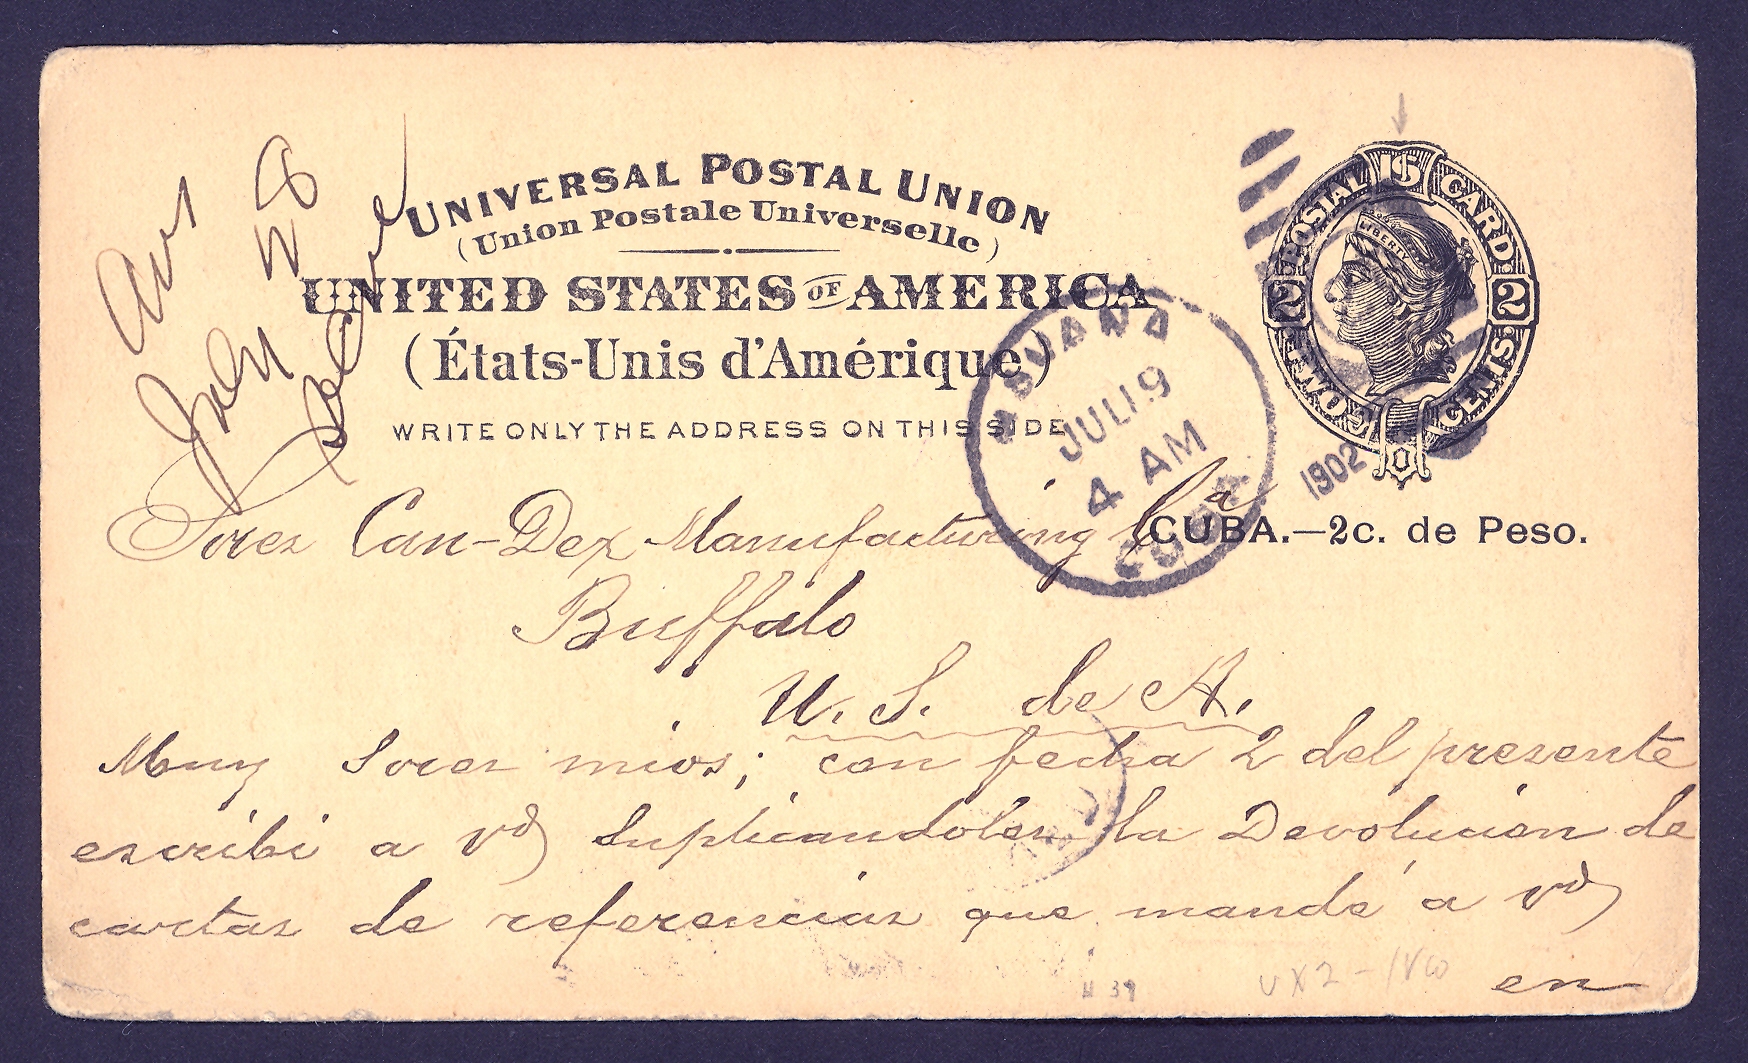 UNIVERSAL POSTAL UNION
(Union Postale Universelle)
UNITED STATES OF AMERICA
(États-Unis d'Amérique)
WRITE ONLY THE ADDRESS ON THIS SIDE
U.S. POSTAL CARD
2 2
TWO CENTS
LIBERTY
CUBA.—2c. de Peso.
HABANA
JUL 19
4 AM
CUBA
1902
Ans
July 28
Sores Can-Dex Manufacturing Cª
Buffalo
U. S. de A.
Muy Sores mios; con fecha 2 del presente
escribi a Vd Suplicandoles la Devolucion de
cartas de referencias que mandé a Vd
en
# 39
UX2-